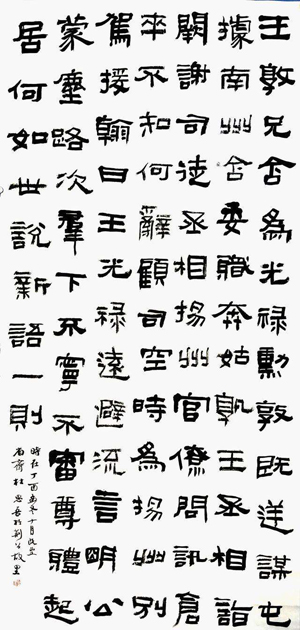 王敦兄含為光祿勳敦既逆謀屯
據南州含委職奔姑孰王丞相詣
闕謝司徒丞相揚州官僚問訊倉
卒不知何辭顧司空時為揚州別
駕援翰曰王光祿遠避流言明公
蒙塵路次羣下不寧不審尊體起
居何如世說新語一則
時在丁酉孟冬十月既望